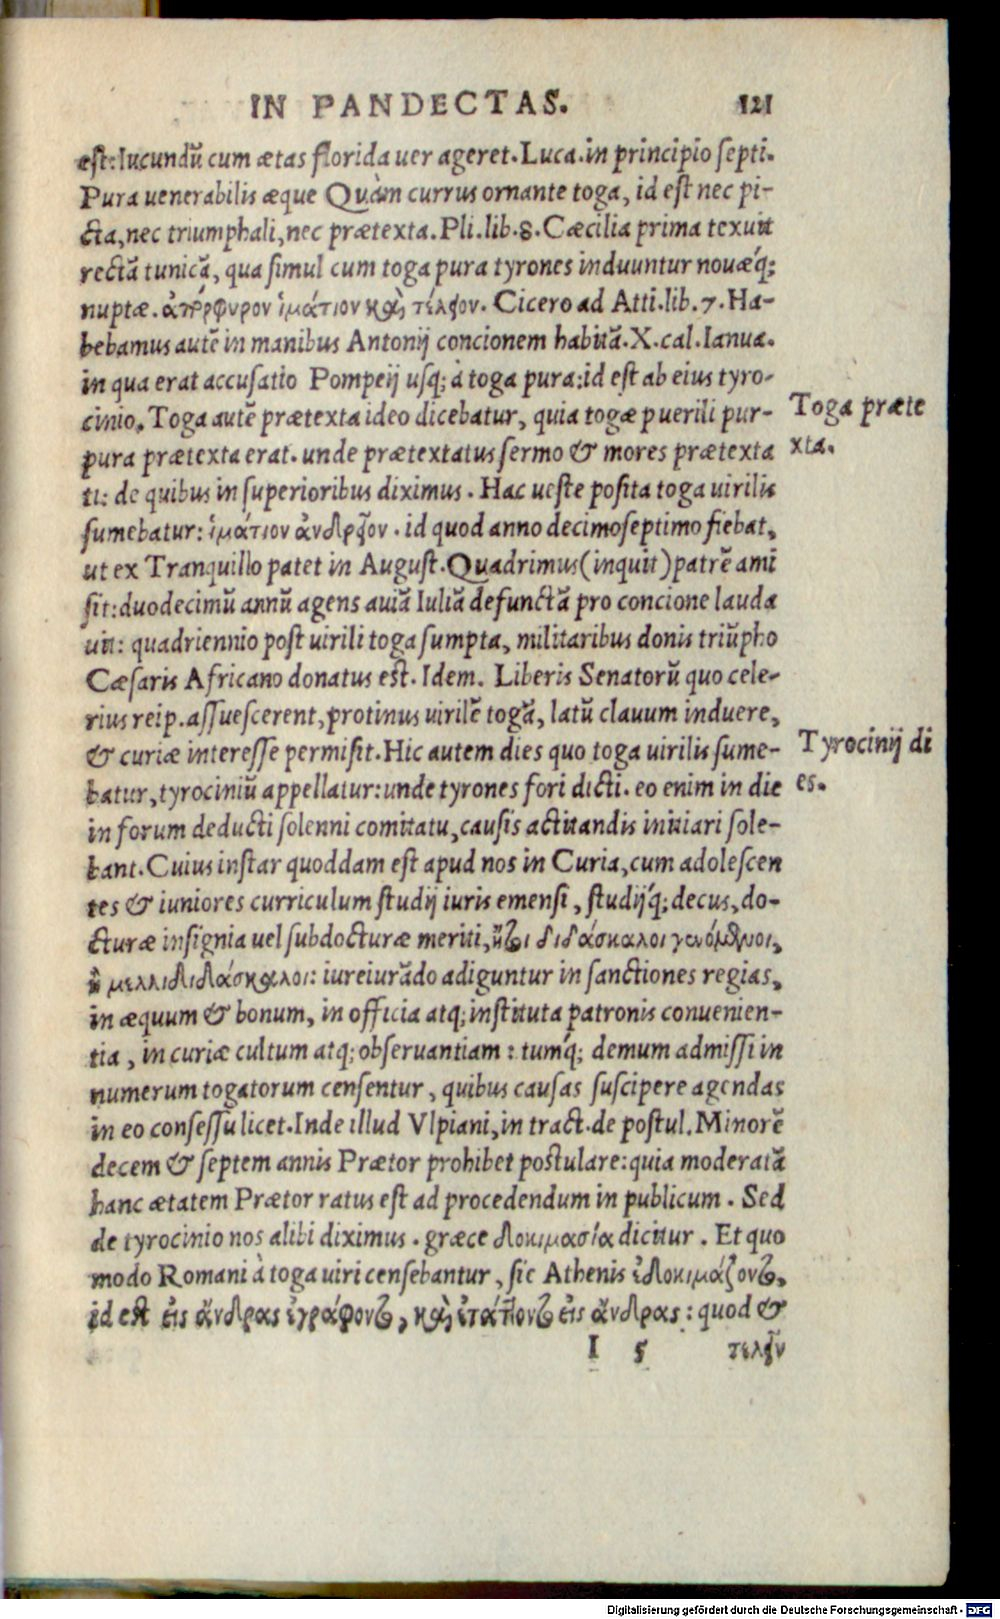 IN PANDECTAS. 121
est: Iucundũ cum ætas florida uer ageret. Luca. in principio septi.
Pura uenerabilis æque Quàm currus ornante toga, id est nec pi-
cta, nec triumphali, nec prætexta. Pli. lib. 8. Cæcilia prima texuit
rectã tunicã, qua simul cum toga pura tyrones induuntur nouæq́;
nuptæ. ἀπόρφυρον ἱμάτιον καὶ τέλειον. Cicero ad Atti. lib. 7. Ha-
bebamus autẽ in manibus Antonij concionem habitã. X. cal. Ianua.
in qua erat accusatio Pompeij usq; à toga pura: id est ab eius tyro-
cinio. Toga autẽ prætexta ideo dicebatur, quia togæ puerili pur-
Toga præte
pura prætexta erat. unde prætextatus sermo & mores prætexta
xta.
ti: de quibus in superioribus diximus. Hac ueste posita toga uirilis
sumebatur: ἱμάτιον ἀνδρεῖον. id quod anno decimoseptimo fiebat,
ut ex Tranquillo patet in August. Quadrimus (inquit) patrẽ ami
sit: duodecimũ annũ agens auiã Iuliã defunctã pro concione lauda
uit: quadriennio post uirili toga sumpta, militaribus donis triũpho
Cæsaris Africano donatus est. Idem. Liberis Senatorũ quo cele-
rius reip. assuescerent, protinus uirilẽ togã, latũ clauum induere,
& curiæ interesse permisit. Hic autem dies quo toga uirilis sume-
Tyrocinij di
batur, tyrociniũ appellatur: unde tyrones fori dicti. eo enim in die
es.
in forum deducti solenni comitatu, causis actitandis initiari sole-
bant. Cuius instar quoddam est apud nos in Curia, cum adolescen
tes & iuniores curriculum studij iuris emensi, studijq́; decus, do-
cturæ insignia uel subdocturæ meriti, διδάσκαλοι γενόμενοι,
ἢ μελλιδιδάσκαλοι: iureiurãdo adiguntur in sanctiones regias,
in æquum & bonum, in officia atq; instituta patronis conuenien-
tia, in curiæ cultum atq; obseruantiam: tumq́; demum admissi in
numerum togatorum censentur, quibus causas suscipere agendas
in eo consessu licet. Inde illud Vlpiani, in tract. de postul. Minorẽ
decem & septem annis Prætor prohibet postulare: quia moderatã
hanc ætatem Prætor ratus est ad procedendum in publicum. Sed
de tyrocinio nos alibi diximus. græce δοκιμασία dicitur. Et quo
modo Romani à toga uiri censebantur, sic Athenis ἐδοκιμάζοντο,
id est εἰς ἄνδρας ἐγράφοντο, καὶ ἐτάττοντο εἰς ἄνδρας: quod &
I 5 τελεῖν
Digitalisierung gefördert durch die Deutsche Forschungsgemeinschaft - DFG